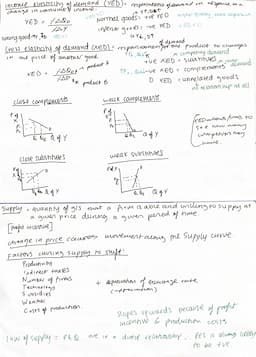 income elasticity of demand (YED) = responsiveness of demand in response to a
change in consumers income.
YED = %ΔQd
%ΔY
normal goods = +ve YED
inferior goods = -ve YED
cross elasticity of demand (XED) = responsiveness for one product to changes
in the price of another good
XED = %ΔQd product A
%ΔP product B
+ve XED = substitutes
-ve XED = complements
0 XED = unrelated goods
no relationship at all
close complements
weak complements
P of X
Q of Y
P of X
Q of Y
close substitutes
weak substitutes
P of X
Q of Y
P of X
Q of Y
Supply = quantity of g/s that a firm is able and willing to supply at
a given price during a given period of time
[profit incentive]
change in price causes movement along the supply curve
Factors causing supply to shift:
Productivity
Indirect taxes
Number of firms
Technology
Subsidies
Weather
Costs of production
+ depreciation of exchange rate
slopes upwards because of profit
incentive & production costs
law of supply = P & Q are in a direct relationship
PES is always likely
to be +ve